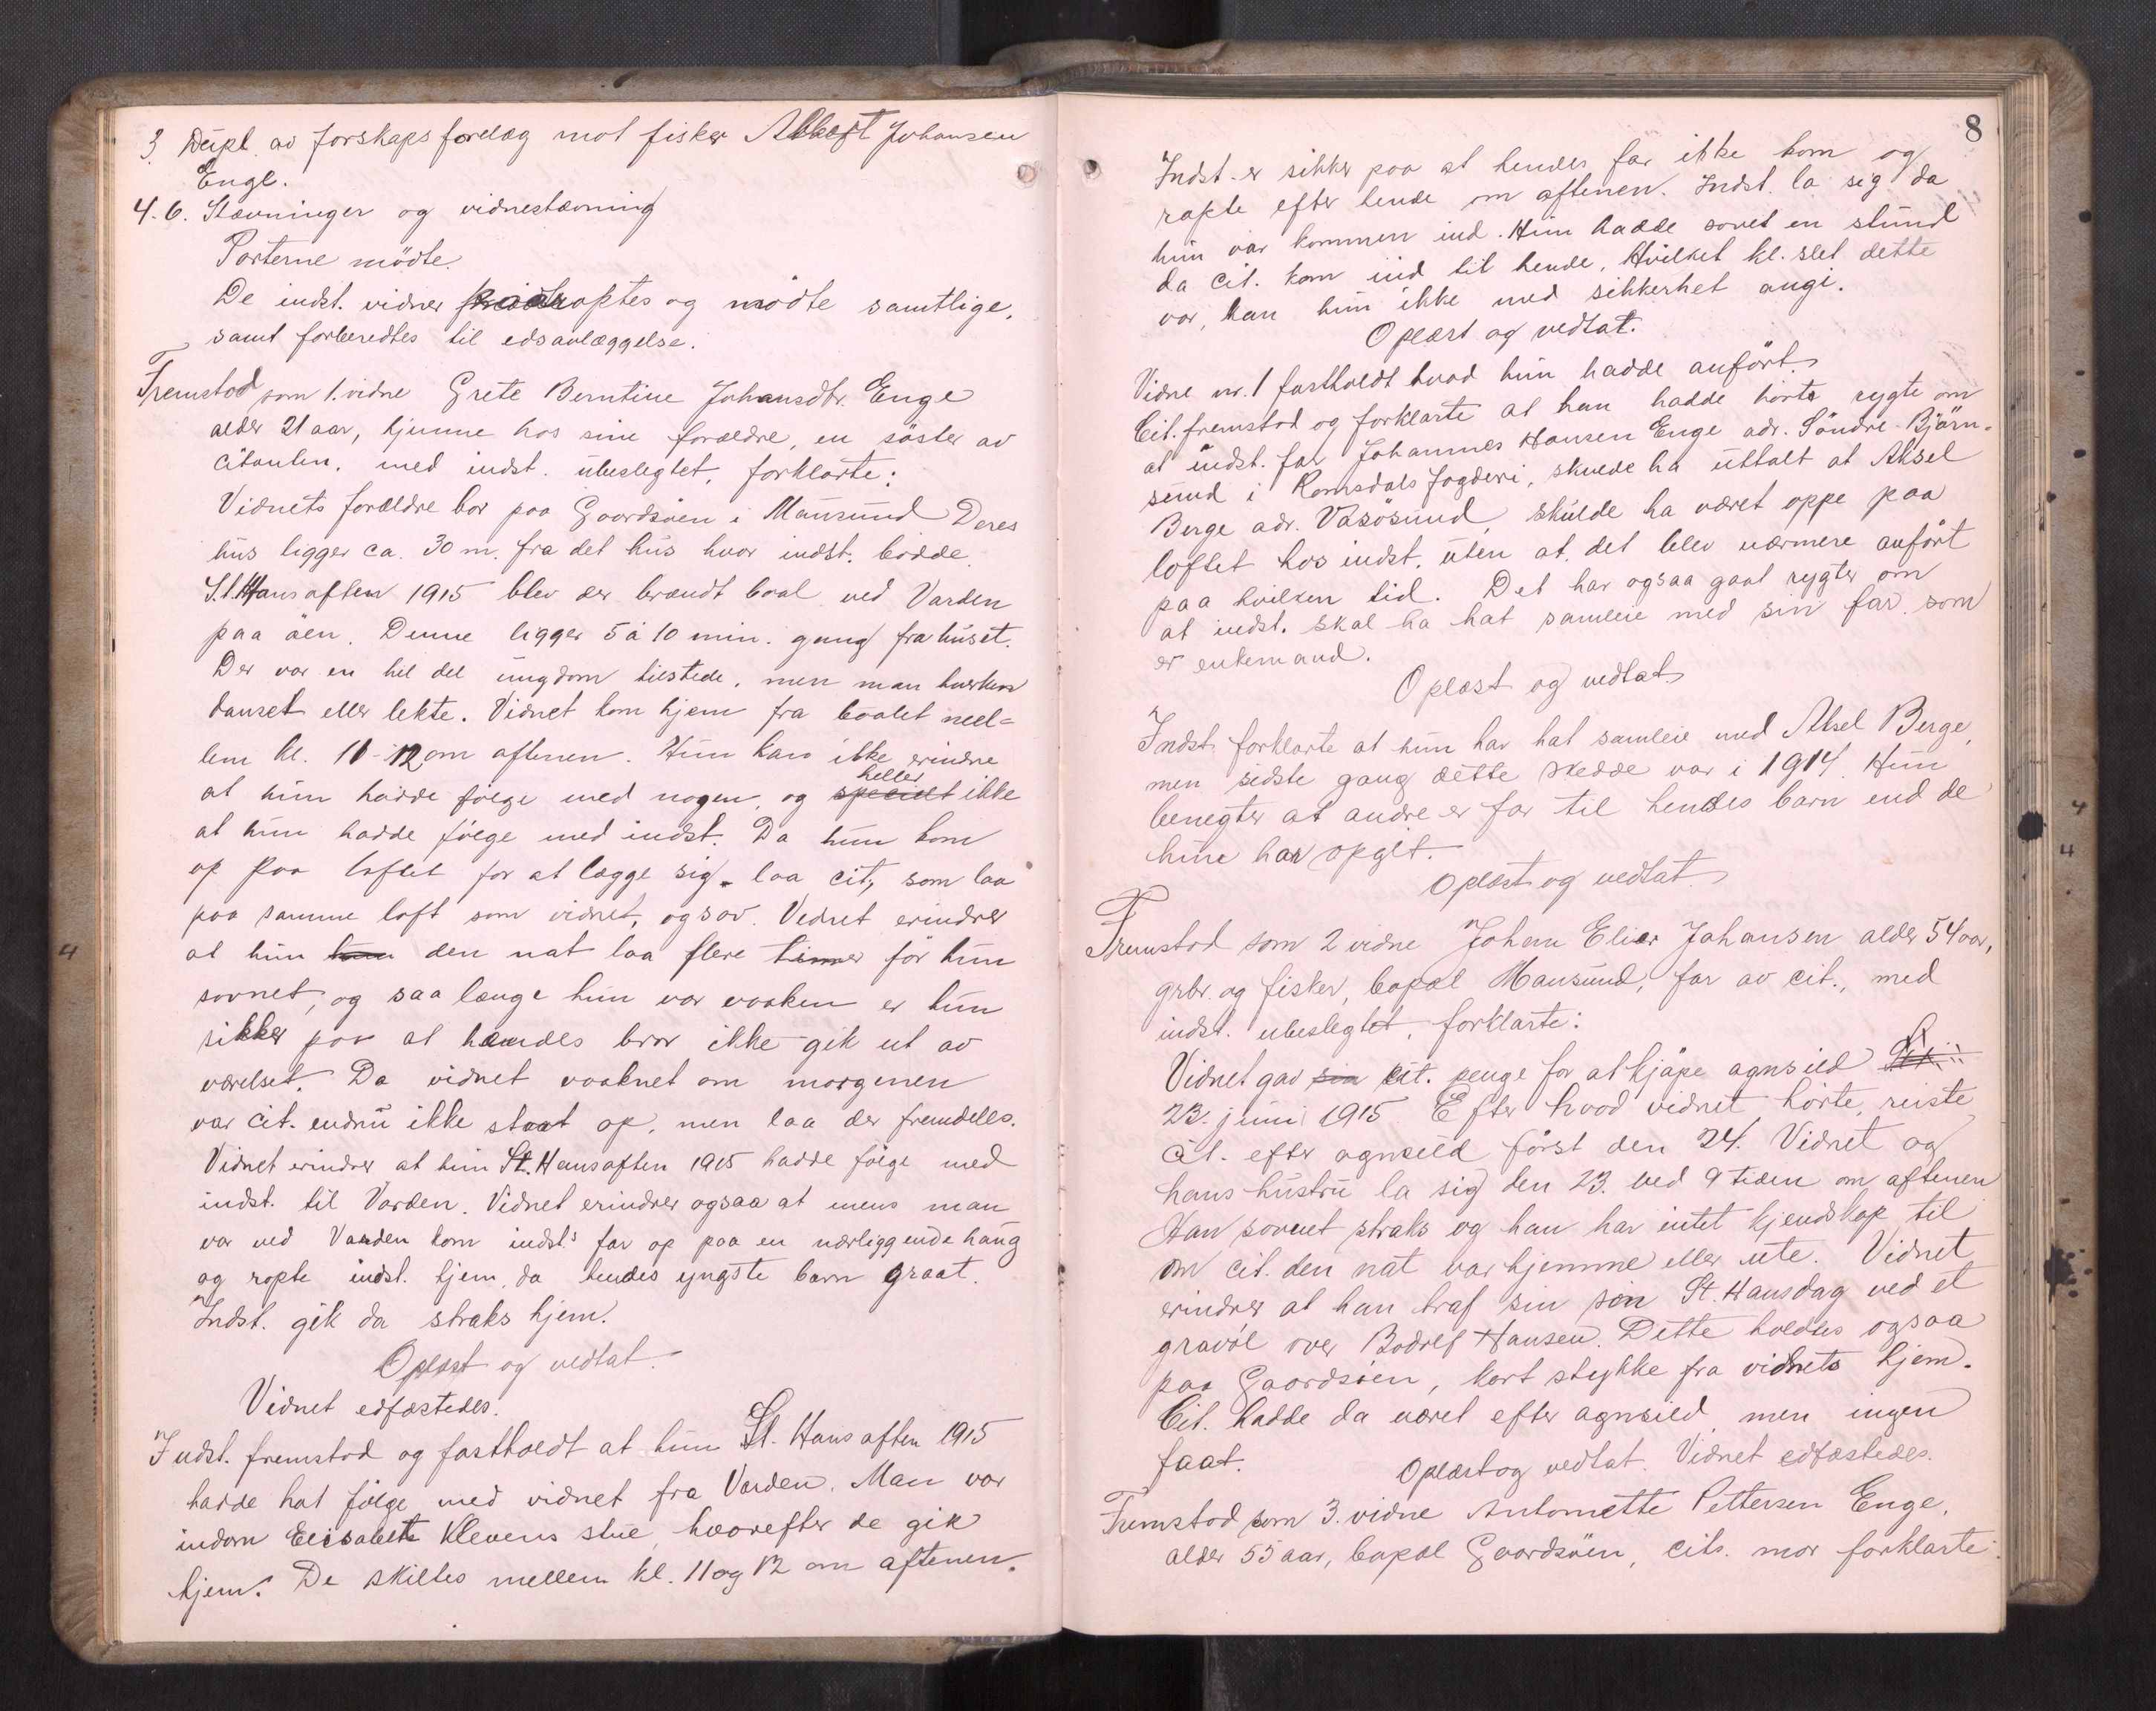 3. Dupl. av forskapsforelæg mot fisker Albert Johansen
Enge.
4.6. Stævninger og vidnestævning
Parterne mödte.
De indst. vidner paaroptes og mödte samtlige,
samt forberedtes til edsavlæggelse.
Fremstod som 1. vidne Grete Berntine Johansdtr. Enge
alder 21 aar, hjemme hos sine forældre, en söster av
citanten, med indst. ubeslegtet, forklarte:
Vidnets forældre bor paa Gaardsöen i Mausund Deres
hus ligger ca. 30 m. fra det hus hvor indst. bodde.
St. Hansaften 1915 blev der brændt baal ved Varden
paa öen. Denne ligger 5 à 10 min. gang fra huset.
Der var en hel del ungdom tilstede, men man hverken
danset eller lekte. Vidnet kom hjem fra baalet mel=
lem kl. 11-12 om aftenen. Hun kan ikke erindre
at hun hadde fölge med nogen, og specielt heller ikke
at hun hadde fölge med indst. Da hun kom
op paa loftet for at lægge sig, laa cit, som laa
paa samme loft som vidnet, og sov. Vidnet erindrer
at hun hun den nat laa flere timer för hun
sovnet, og saa længe hun var vaaken er hun
sikker paa at hendes bror ikke gik ut av
værelset. Da vidnet vaaknet om morgenen
var cit. endnu ikke staat op, men laa der fremdeles.
Vidnet erindrer at hun St. Hansaften 1915 hadde fölge med
indst. til Varden. Vidnet erindrer ogsaa at mens man
var ved Varden kom indst.s far op paa en nærliggende haug
og ropte indst. hjem, da hendes yngste barn graat.
Indst. gik da straks hjem.
Oplæst og vedtat.
Vidnet edfæstedes.
Indst. fremstod og fastholdt at hun St. Hansaften 1915
hadde hat fölge med vidnet fra Varden. Man var
indom Elisabeth Klevens stue, hvorefter de gik
hjem. De skiltes mellem kl. 11 og 12 om aftenen.
8
Indst. er sikker paa at hendes far ikke kom og
ropte efter hende om aftenen. Indst. la sig da
hun var kommen ind. Hun hadde sovet en stund
da cit. kom ind til hende. Hvilket kl. slet dette
var, kan hun ikke med sikkerhet angi.
Oplæst og vedtat.
Vidne nr. 1 fastholdt hvad hun hadde anfört.
Cit. fremstod og forklarte at han hadde hört rygte om
at indst. far Johannes Hansen Enge adr. Söndre Björn=
sund i Romsdals fogderi, skulde ha uttalt at Aksel
Berge adr. Vasösund, skulde ha været oppe paa
loftet hos indst. uten at det blev nærmere anfört
paa hvilken tid. Det har ogsaa gaat rygter om
at indst. skal ha hat samleie med sin far som
er enkemand.
Oplæst og vedtat.
Indst. forklarte at hun har hat samleie med Aksel Berge,
men sidste gang dette skedde var i 1914. Hun
benegter at andre er far til hendes barn end de
hun har opgit.
Oplæst og vedtat.
Fremstod som 2 vidne Johan Elier Johansen alder 54 aar,
grbr. og fisker, bopæl Mausund, far av cit., med
indst. ubeslegtet, forklarte:
Vidnet gav sin cit. penge for at kjöpe agnsild
23. juni 1915. Efter hvad vidnet hörte, reiste
cit. efter agnsild först den 24. Vidnet og
hans hustru la sig den 23. ved 9 tiden om aftenen
Han sovnet straks og han har intet kjendskap til
om cit. den nat var hjemme eller ute. Vidnet
erindrer at han traf sin sön St. Hansdag ved et
gravöl over Bodolf Hansen. Dette holdtes ogsaa
paa Gaardsöen, kort stykke fra vidnets hjem.
Cit. hadde da været efter agnsild men ingen
faat. Oplæst og vedtat. Vidnet edfæstedes.
Fremstod som 3. vidne Antonette Pettersen Enge,
alder 55 aar, bopæl Gaardsöen, cits. mor forklarte: